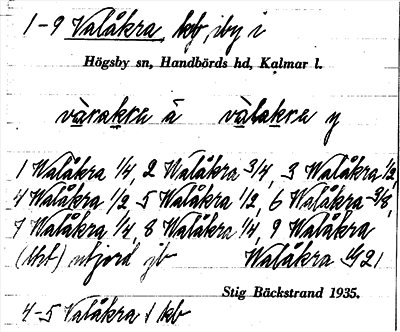 1-9 Valåkra, kb, by i
Högsby sn, Handbörds hd, Kalmar l.
vàrakra ä vàlakra y
1 Walåkra 1/4, 2 Walåkra 3/4, 3 Walåkra 1/2,
4 Walåkra 1/2, 5 Walåkra 1/2, 6 Walåkra 3/8,
7 Walåkra 1/4, 8 Walåkra 1/4, 9 Walåkra
utjord jb Walåkra
Stig Bäckstrand 1935.
4-5 Valåkra 1 kb